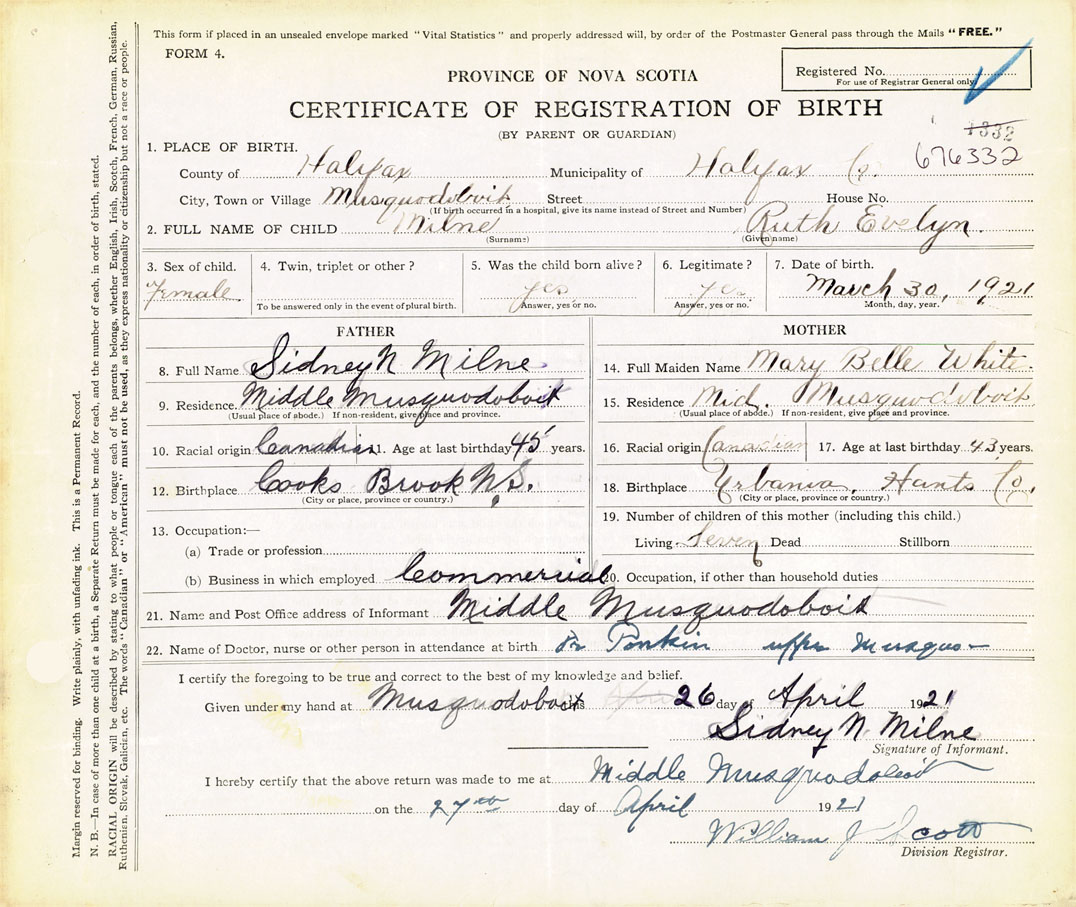 This form if placed in an unsealed envelope marked "Vital Statistics" and properly addressed will, by order of the Postmaster General pass through the Mails "FREE."
FORM 4.
Registered No.
For use of Registrar General only
PROVINCE OF NOVA SCOTIA
CERTIFICATE OF REGISTRATION OF BIRTH
(BY PARENT OR GUARDIAN)
1332
676332
1. PLACE OF BIRTH.
County of Halifax Municipality of Halifax Co.
City, Town or Village Musquodoboit Street House No.
(If birth occurred in a hospital, give its name instead of Street and Number)
2. FULL NAME OF CHILD Milne Ruth Evelyn.
(Surname) (Given name)
3. Sex of child. 4. Twin, triplet or other? 5. Was the child born alive? 6. Legitimate? 7. Date of birth.
Female yes yes March 30, 1921
To be answered only in the event of plural birth. Answer, yes or no. Answer, yes or no. Month, day, year.
FATHER MOTHER
8. Full Name Sidney N Milne 14. Full Maiden Name Mary Belle White.
9. Residence. Middle Musquodoboit 15. Residence Mid. Musquodoboit
(Usual place of abode.) If non-resident, give place and province. (Usual place of abode.) If non-resident, give place and province.
10. Racial origin Canadian 11. Age at last birthday 45 years. 16. Racial origin Canadian 17. Age at last birthday 43 years.
12. Birthplace Cooks Brook N.S. 18. Birthplace Urbania, Hants Co.
(City or place, province or country.) (City or place, province or country.)
13. Occupation:— 19. Number of children of this mother (including this child.)
(a) Trade or profession Living Seven Dead Stillborn
(b) Business in which employed Commercial 20. Occupation, if other than household duties
21. Name and Post Office address of Informant Middle Musquodoboit
22. Name of Doctor, nurse or other person in attendance at birth Dr upper Musquo-
I certify the foregoing to be true and correct to the best of my knowledge and belief.
Given under my hand at Musquodoboit this 26 day of April 1921
Sidney N. Milne
Signature of Informant.
I hereby certify that the above return was made to me at Middle Musquodoboit
on the 27th day of April 1921
William J Scott
Division Registrar.
Margin reserved for binding. Write plainly, with unfading ink. This is a Permanent Record.
N. B.—In case of more than one child at a birth, a Separate Return must be made for each, and the number of each, in order of birth, stated.
RACIAL ORIGIN will be described by stating to what people or tongue each of the parents belongs, whether English, Irish, Scotch, French, German, Russian,
Ruthenian, Slovak, Galician, etc. The words "Canadian" or "American" must not be used, as they express nationality or citizenship but not a race or people.